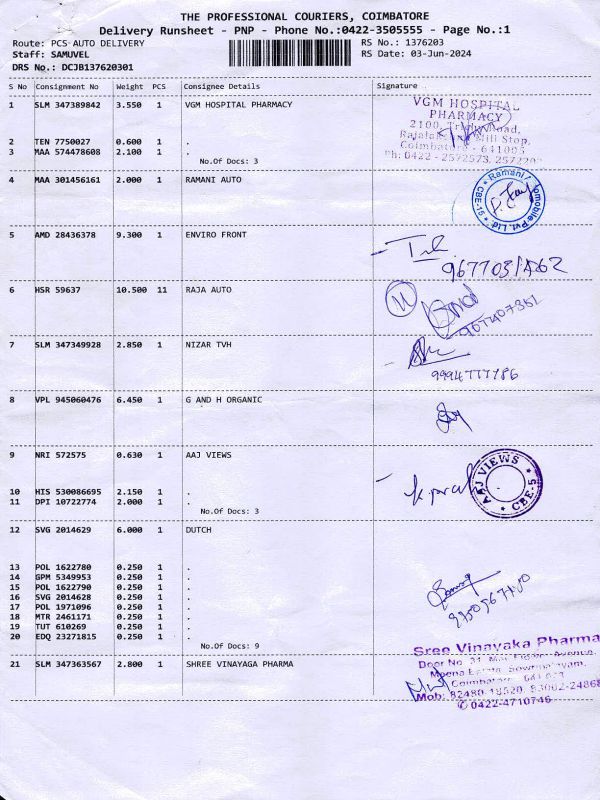 THE PROFESSIONAL COURIERS, COIMBATORE
Delivery Runsheet - PNP - Phone No.:0422-3505555 - Page No.:1
Route: PCS-AUTO DELIVERY RS No.: 1376203
Staff: SAMUVEL RS Date: 03-Jun-2024
DRS No.: DCJB137620301
S No Consignment No Weight PCS Consignee Details Signature
1 SLM 347389842 3.550 1 VGM HOSPITAL PHARMACY
VGM HOSPITAL
PHARMACY
2100, Road,
2 TEN 7750027 0.600 1 .
Mill Stop,
3 MAA 574478608 2.100 1 .
Coimbatore - 641005
No.Of Docs: 3
Ph: 0422 - 2572573,
4 MAA 301456161 2.000 1 RAMANI AUTO
Ramani Pvt. Ltd. CBE-15
5 AMD 28436378 9.300 1 ENVIRO FRONT
6 HSR 59637 10.500 11 RAJA AUTO
11
7 SLM 347349928 2.850 1 NIZAR TVH
9994777786
8 VPL 945060476 6.450 1 G AND H ORGANIC
9 NRI 572575 0.630 1 AAJ VIEWS
AAJ VIEWS CBE-5
10 HIS 530086695 2.150 1 .
11 DPI 10722774 2.000 1 .
No.Of Docs: 3
12 SVG 2014629 6.000 1 DUTCH
13 POL 1622780 0.250 1 .
14 GPM 5349953 0.250 1 .
15 POL 1622790 0.250 1 .
16 SVG 2014628 0.250 1 .
17 POL 1971096 0.250 1 .
18 MTR 2461171 0.250 1 .
19 TUT 610269 0.250 1 .
20 EDQ 23271815 0.250 1 .
No.Of Docs: 9
Sree Vinayaka Pharma
21 SLM 347363567 2.800 1 SHREE VINAYAGA PHARMA
Door No. 31, Avenue,
Meena Sowripalayam,
Coimbatore
Mob: 82480 18520,
0422-4710746